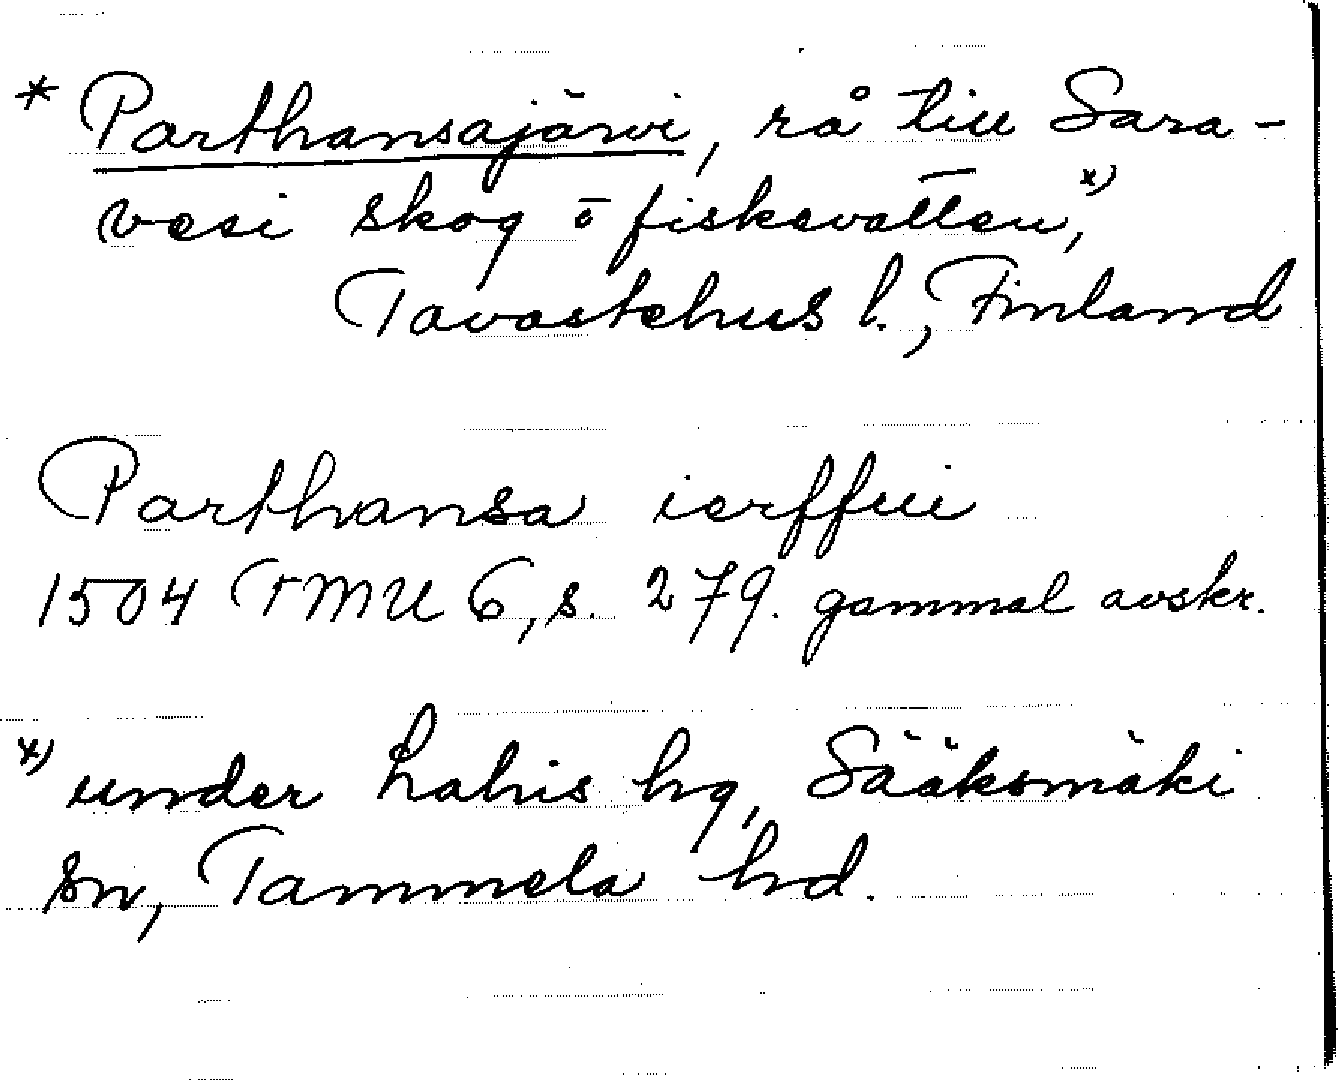 * Parthansajärvi, rå till Sara-
vesi skog o fiskevatten, x)
Tavastehus l., Finland
Parthansa ierffui
1504 TMU 6, s. 279. gammal avskr.
x) under Lahis hg, Sääksmäki
sn, Tammela hd.